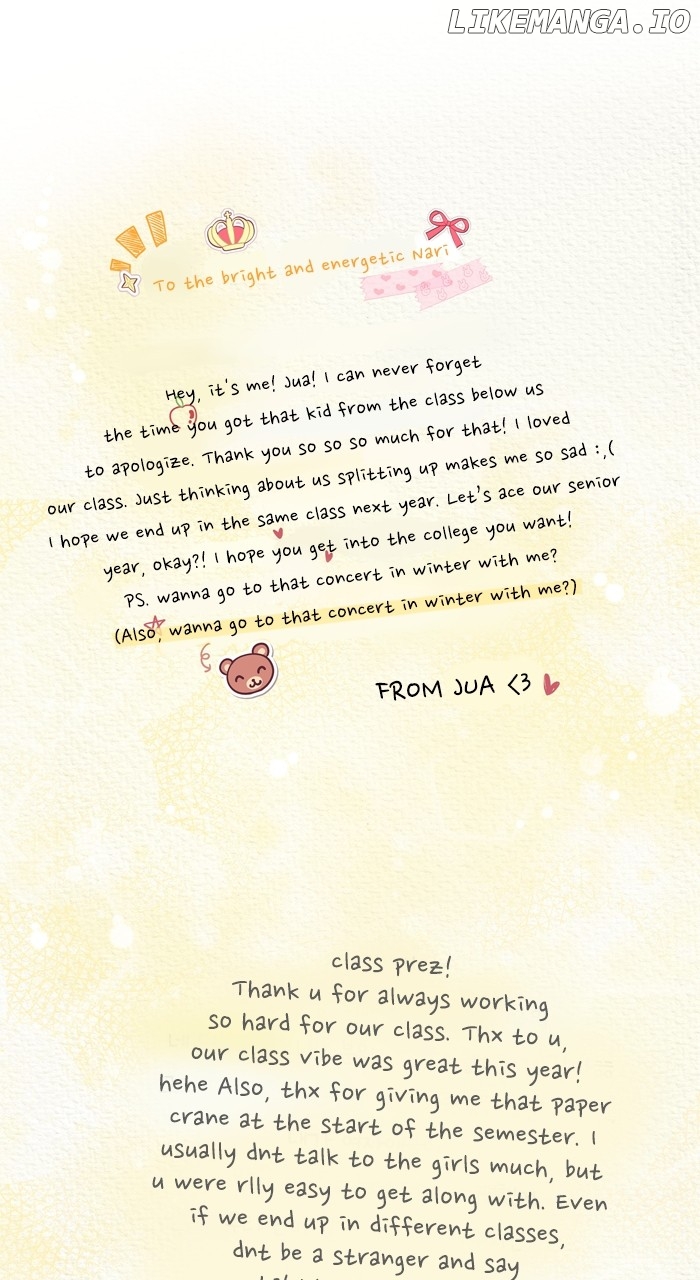 LIKEMANGA.IO
To the bright and energetic Nari
Hey, it's me! Jua! I can never forget
the time you got that kid from the class below us
to apologize. Thank you so so so much for that! I loved
our class. Just thinking about us splitting up makes me so sad :,(
I hope we end up in the same class next year. Let's ace our senior
year, okay?! I hope you get into the college you want!
PS. wanna go to that concert in winter with me?
(Also, wanna go to that concert in winter with me?)
FROM JUA <3
class prez!
Thank u for always working
so hard for our class. Thx to u,
our class vibe was great this year!
hehe Also, thx for giving me that paper
crane at the start of the semester. I
usually dnt talk to the girls much, but
u were rlly easy to get along with. Even
if we end up in different classes,
dnt be a stranger and say